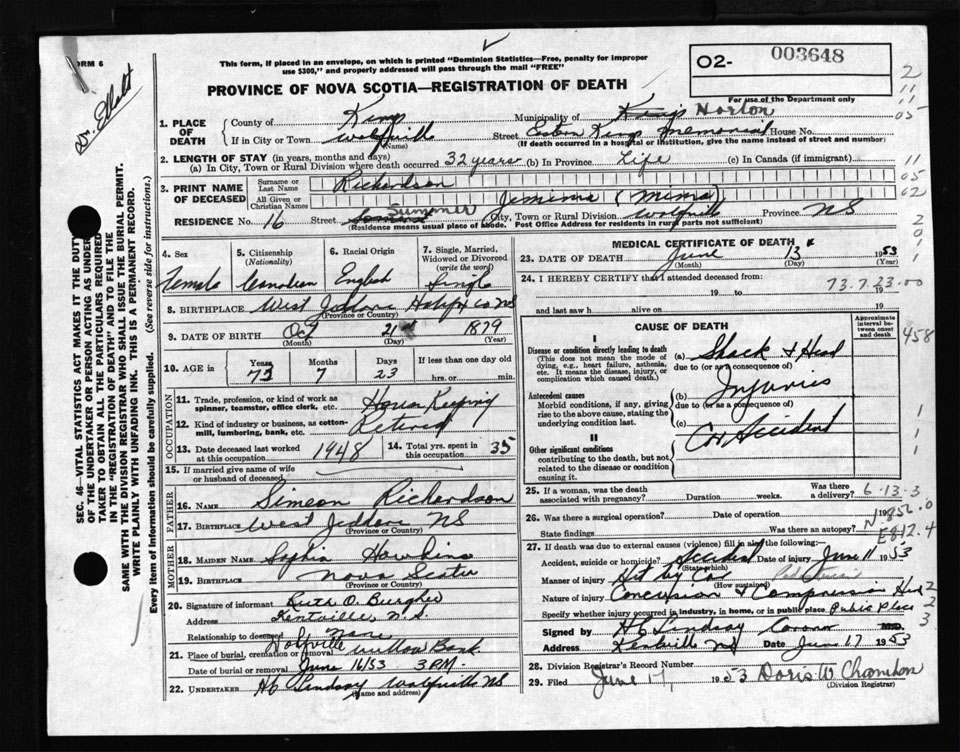 FORM 6
This form, if placed in an envelope, on which is printed "Dominion Statistics—Free, penalty for improper
use $300," and properly addressed will pass through the mail "FREE"
O2- 003648
For use of the Department only
PROVINCE OF NOVA SCOTIA—REGISTRATION OF DEATH
Dr. Elliott
1. PLACE OF DEATH
County of Kings Municipality of Kings Horton
If in City or Town Wolfville (Name) Street Eastern Kings Memorial House No.
(If death occurred in a hospital or institution, give the name instead of street and number)
2. LENGTH OF STAY (in years, months and days)
(a) In City, Town or Rural Division where death occurred 32 years (b) In Province Life (c) In Canada (if immigrant)
3. PRINT NAME OF DECEASED
Surname or Last Name Richardson
All Given or Christian Names Jemima (Mima)
RESIDENCE No. 16 Street Summer (City, Town or Rural Division Wolfville Province NS
(Residence means usual place of abode. Post Office Address for residents in rural parts not sufficient)
4. Sex Female
5. Citizenship (Nationality) Canadian
6. Racial Origin English
7. Single, Married, Widowed or Divorced (write the word) Single
8. BIRTHPLACE West Jeddore Halifax Co NS
(Province or Country)
9. DATE OF BIRTH Oct 21st 1879
(Month) (Day) (Year)
10. AGE in Years 73 Months 7 Days 23 If less than one day old hrs. or min.
OCCUPATION
11. Trade, profession, or kind of work as spinner, teamster, office clerk, etc. House Keeping
12. Kind of industry or business, as cotton-mill, lumbering, bank, etc. Retired
13. Date deceased last worked at this occupation 1948
14. Total yrs. spent in this occupation 35
15. If married give name of wife or husband of deceased
FATHER
16. NAME Simeon Richardson
17. BIRTHPLACE West Jeddore NS
(Province or Country)
MOTHER
18. MAIDEN NAME Sophia Hawkins
19. BIRTHPLACE Nova Scotia
(Province or Country)
20. Signature of informant Ruth O. Burgher
Address Kentville N.S.
Relationship to deceased None
21. Place of burial, cremation or removal Wolfville Willow Bank
Date of burial or removal June 16/53 3 PM.
22. UNDERTAKER HC Lindsay Wolfville NS
(Name and address)
MEDICAL CERTIFICATE OF DEATH
23. DATE OF DEATH June 13 1953
(Month) (Day) (Year)
24. I HEREBY CERTIFY that I attended deceased from
19 to 19
and last saw h alive on
73.7.23.00
CAUSE OF DEATH
Approximate interval between onset and death
I
Disease or condition directly leading to death
(This does not mean the mode of dying, e.g., heart failure, asthenia, etc. It means the disease, injury, or complication which caused death.)
(a) Shock & Head
due to (or as a consequence of)
Antecedent causes
Morbid conditions, if any, giving rise to the above cause, stating the underlying condition last.
(b) Injuries
due to (or as a consequence of)
(c) Car Accident
II
Other significant conditions
contributing to the death, but not related to the disease or condition causing it.
25. If a woman, was the death associated with pregnancy? Duration weeks. Was there a delivery? 6-13-3
26. Was there a surgical operation? Date of operation N.856.0
State findings Was there an autopsy? E812.4
27. If death was due to external causes (violence) fill in also the following:—
Accident, suicide or homicide? Accident (State which) Date of injury June 11 1953
Manner of injury Hit by Car Pedestrian
(How sustained)
Nature of injury Concussion & Compression Head
Specify whether injury occurred in industry, in home, or in public place Public Place
Signed by HC Lindsay Coroner M.D.
Address Kentville NS Date June 17 1953
28. Division Registrar's Record Number
29. Filed June 17, 1953
(Division Registrar)
SEC. 46—VITAL STATISTICS ACT MAKES IT THE DUTY
OF THE UNDERTAKER OR PERSON ACTING AS UNDER-
TAKER TO OBTAIN ALL THE PARTICULARS REQUIRED
IN THE "REGISTRATION OF DEATH" AND TO FILE THE
SAME WITH THE DIVISION REGISTRAR WHO SHALL ISSUE THE BURIAL PERMIT.
WRITE PLAINLY WITH UNFADING INK. THIS IS A PERMANENT RECORD.
Every item of information should be carefully supplied. (See reverse side for instructions.)
2
11
11
05
11
05
02
2
0
1
1
458
1
1
1
2
2
3